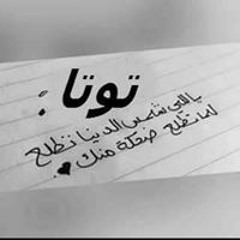 توتا :
ياللي شمس الدنيا تطلع
لما تطلع ضحكة منك